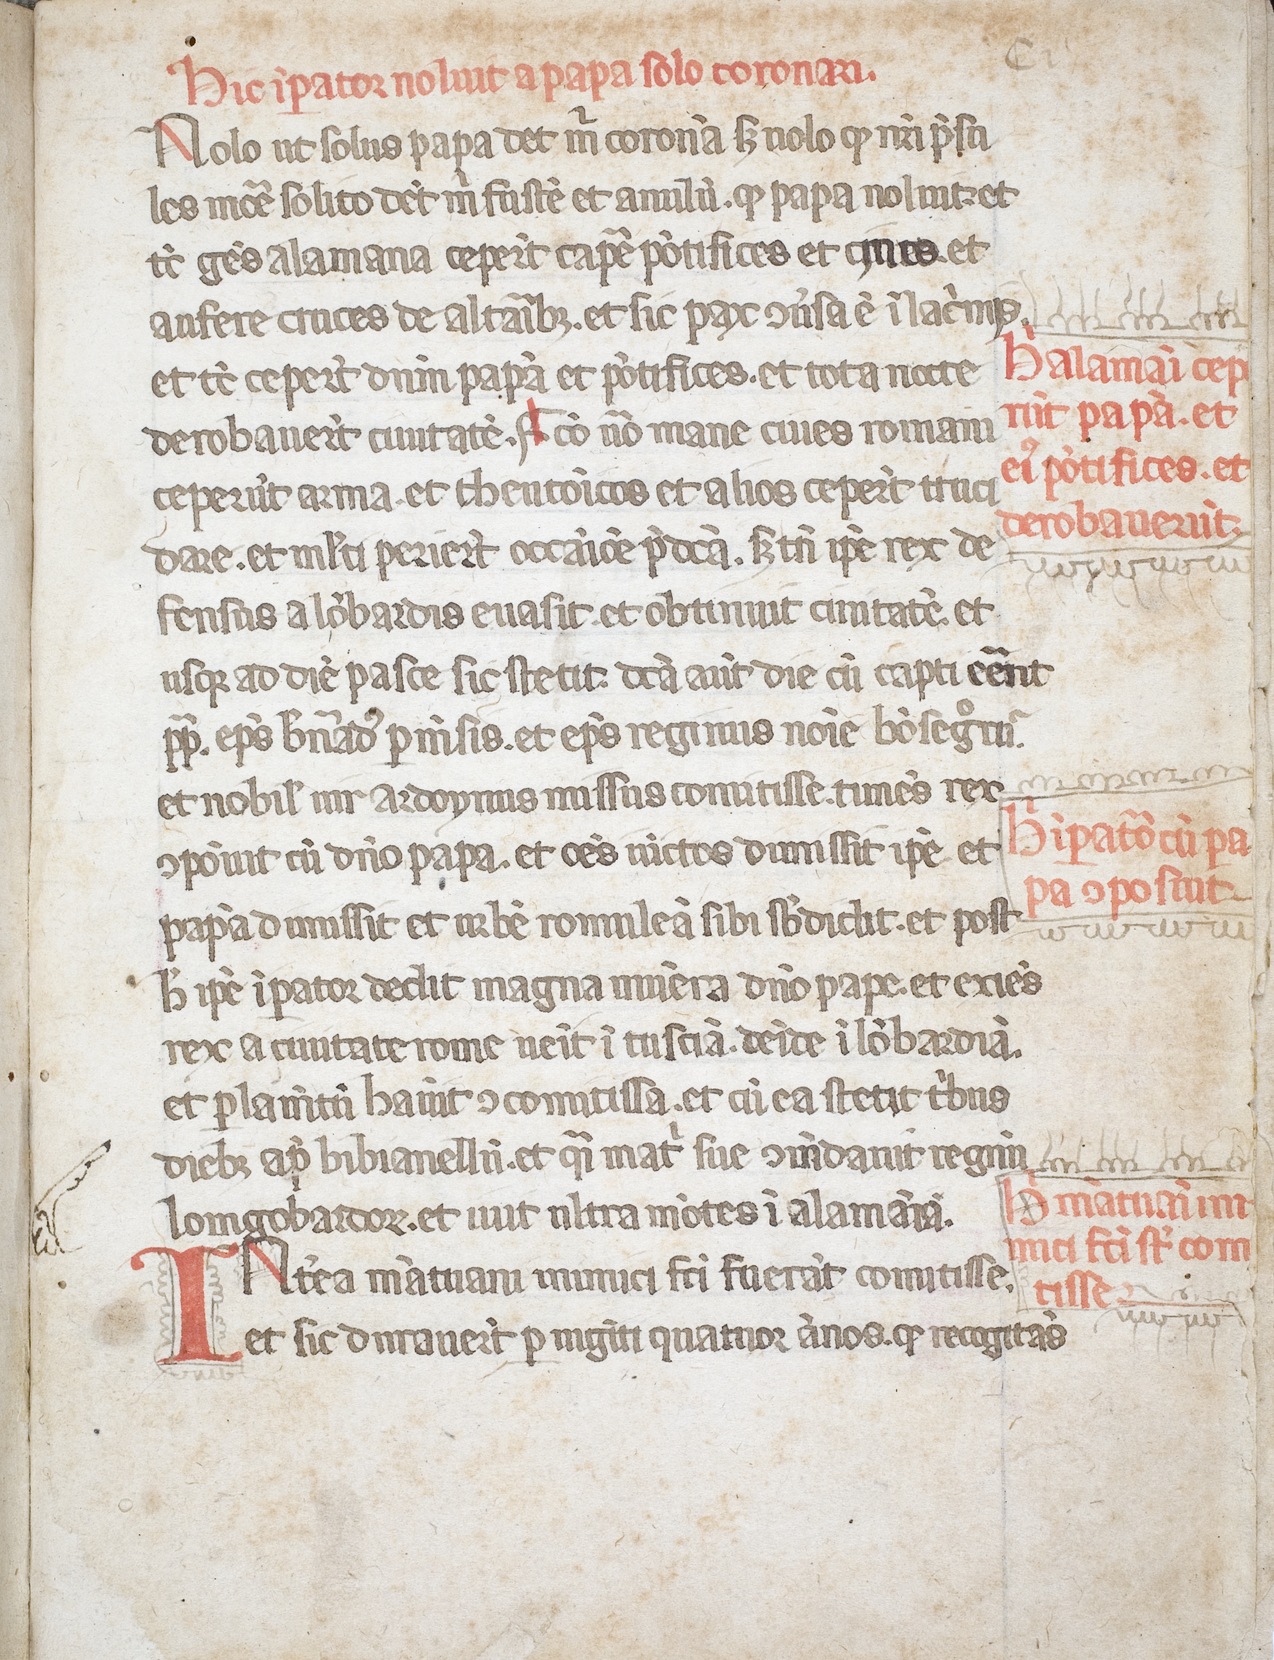 Hic īpator noluit a papa solo coronari.
Nolo ut solus papa det m̄ coronā sꝫ uolo ꝙ nr̄i p̄su
les mōe solito dēt m̄ fustē et anulū. ꝙ papa noluit. et
tc̄ gēs alamana ceperūt cap̄e pōtifices et ciues. et
aufere cruces de altarībꝫ. et sic pax ↄu̇sa ē ī lac̄mis.
et tc̄ ceper̄t dnm papā et pōtifices. et tota nocte
derobauer̄t ciuitatē. Scō uō mane ciues romani
ceper̄ūt arma. et theutōicos et alios ceper̄t truci
dare. et ml̄ti perier̄t occāiōe p̄dcā. sꝫ tn̄ ip̄e rex de
fensus a lōbardis euasit. et obtinuit ciuitatē. et
usqꝫ ad diē pasce sic stetit. dcā aūt die cū capti eēnt
pp̄. ep̄s bn̄ard⁹ pmsis. et ep̄s reginus noīe bōsegn̄or
et nobil̄ uir ardoynus missus comitisse. tūnēs rex
ↄpōuit cū dn̄o papa. et oēs uictos dimissit ip̄e et
papā dimissit et urbē romuleā sibi sb̄didit. et post
h̄ ip̄e īpator dedit magna munēra dn̄o pape. et exiēs
rex a ciuitate rome uēit ī tusciā. deīde ī lōbardiā.
et plamītū hauit ↄ comitissa. et cū ea stetit tribus
diebꝫ ap̄ bibianellū. et qi mat̄ sue ↄmdauit regnū
longobardoꝝ. et iuit ultra mōtes ī alamāiā.
INt̄ea mātuani inimici fc̄i fuer̄āt comitisse.
et sic durauer̄t p uiginti quatuor ānos. ꝙ recogitās
h̄ alamāi cepe
rūt papā. et
ei⁹ pōtifices. et
derobauerūt
h̄ īpatō cū pa
pa ↄposuit
h̄ mātuāi ini
mici fc̄i st̄ comi
tisse